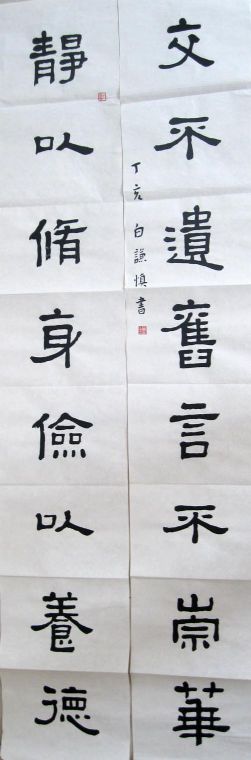 交不遺舊言不崇華
靜以脩身儉以養德
丁亥白謙慎書